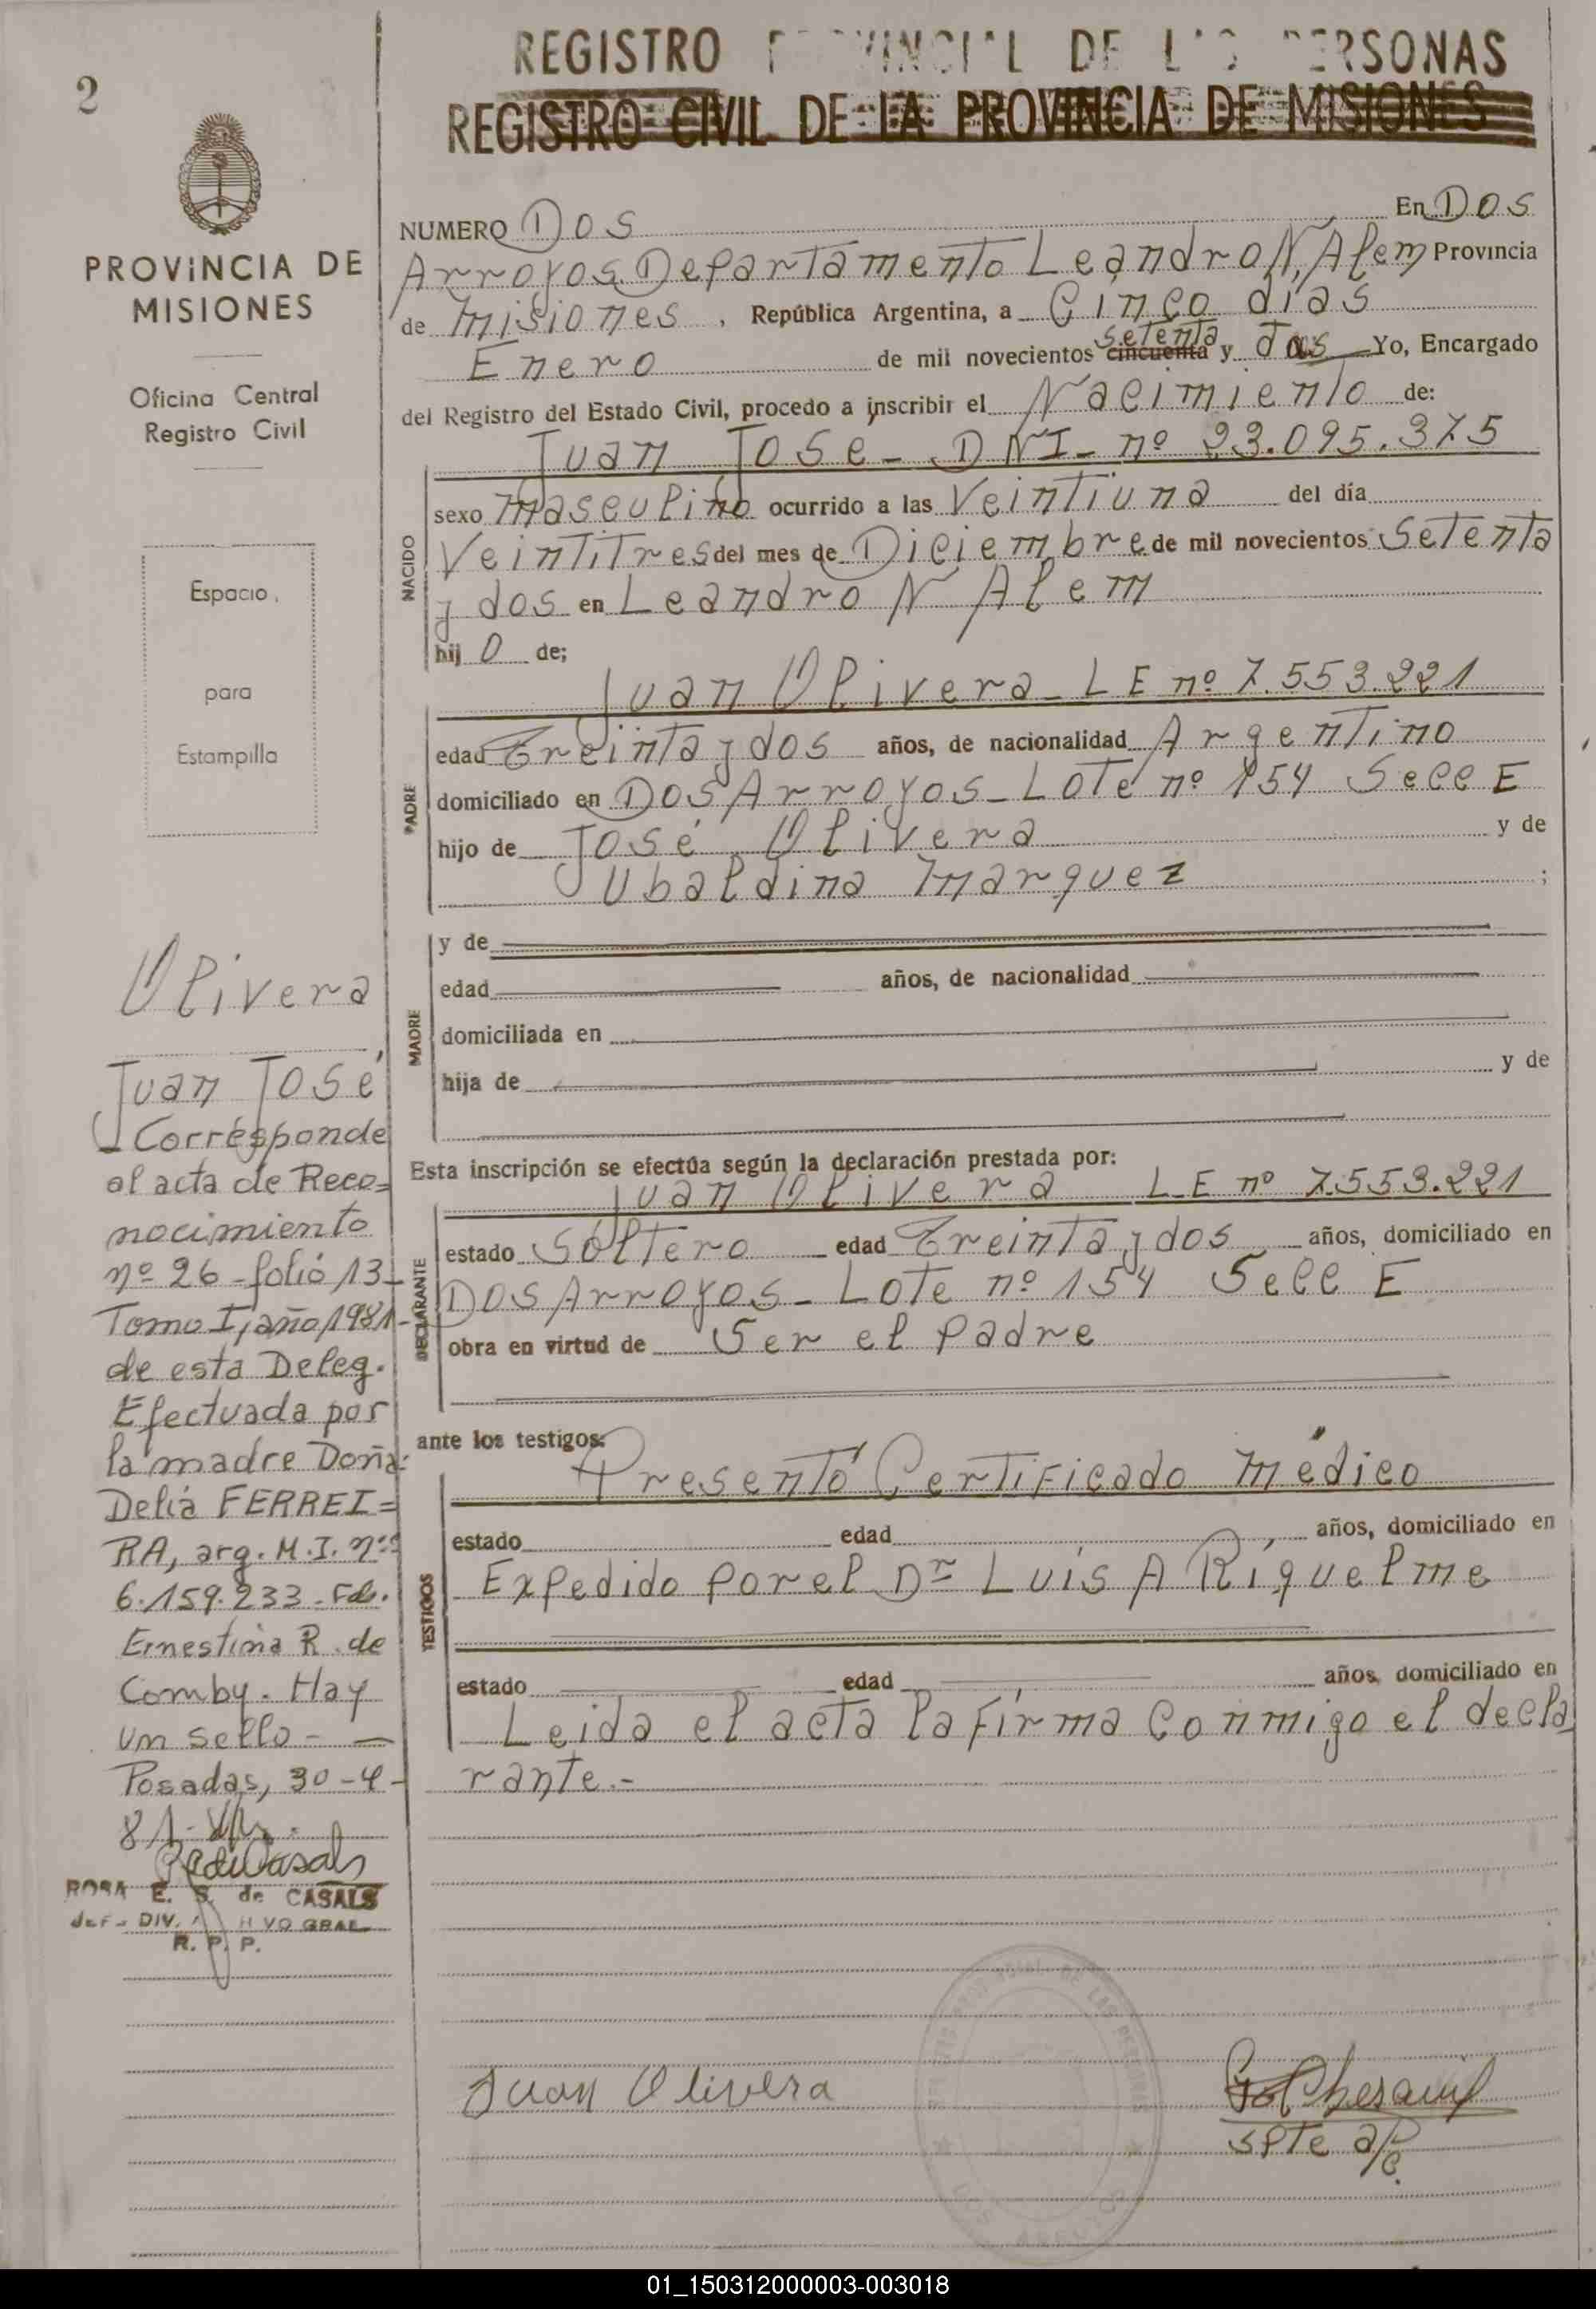 2
REGISTRO PROVINCIAL DE LAS PERSONAS
REGISTRO CIVIL DE LA PROVINCIA DE MISIONES
PROVINCIA DE
MISIONES
Oficina Central
Registro Civil
Espacio
para
Estampilla
NUMERO Dos En Dos
Arroyos Departamento Leandro N. Alem Provincia
de Misiones, República Argentina, a Cinco dias
Enero de mil novecientos cincuenta setenta y dos Yo, Encargado
del Registro del Estado Civil, procedo a inscribir el Nacimiento de:
Juan Jose - DNI - nº 23.095.375
NACIDO
sexo Masculino ocurrido a las Veintiuna del día
Veintitres del mes de Diciembre de mil novecientos Setenta
y dos en Leandro N Alem
hij o de;
Juan Olivera - LE nº 7.553.221
PADRE
edad Treinta y dos años, de nacionalidad Argentino
domiciliado en Dos Arroyos - Lote nº 154 Secc E
hijo de José Olivera y de
Ubaldina Marquez ;
MADRE
y de
edad años, de nacionalidad
domiciliada en
hija de y de
Esta inscripción se efectúa según la declaración prestada por:
Juan Olivera LE nº 7.553.221
DECLARANTE
estado Soltero edad Treinta y dos años, domiciliado en
Dos Arroyos - Lote nº 154 Secc E
obra en virtud de Ser el padre
ante los testigos:
Presentó Certificado Médico
TESTIGOS
estado edad años, domiciliado en
Expedido por el Dr Luis A Riquelme
estado edad años, domiciliado en
Leida el acta la firma conmigo el decla
rante.-
Olivera
Juan José
- Corresponde
al acta de Reco=
nocimiento
nº 26 - folio 13 -
Tomo I, año 1981 -
de esta Deleg.
Efectuada por
la madre Doña:
Delia FERREI=
RA, arg. M.I. nº
6.159.233 - Fdo.
Ernestina R. de
Comby. Hay
un sello - —
Posadas, 30-4-
81-
ROSA E. S. de CASALS
JEFE DIV. ARCHIVO GRAL.
R. P. P.
Juan Olivera
Spte a/c.
01_150312000003-003018